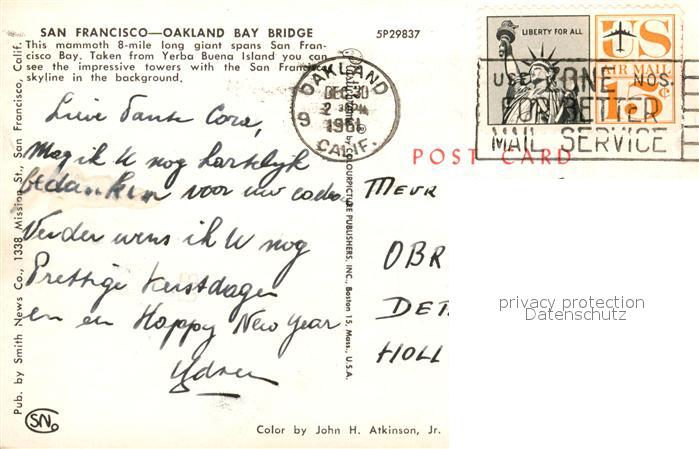 SAN FRANCISCO—OAKLAND BAY BRIDGE 5P29837
This mammoth 8-mile long giant spans San Fran-
cisco Bay. Taken from Yerba Buena Island you can
see the impressive towers with the San Francisco
skyline in the background.
Lieve Tante Cora,
Mag ik U nog hartelyk
bedanken voor uw cado
Verder wens ik U nog
Prettige Kerstdagen
en en Happy New Year
Pub. by Smith News Co., 1338 Mission St., San Francisco, Calif.
SN
OAKLAND
DEC 30
2 PM
1961
CALIF.
9
by COLOURPICTURE PUBLISHERS, INC., Boston 15, Mass., U.S.A.
LIBERTY FOR ALL
US
AIR MAIL
15c
USE ZONE NOS.
FOR BETTER
MAIL SERVICE
POST CARD
MEVR
OBR
DET
HOLL
privacy protection
Datenschutz
Color by John H. Atkinson, Jr.